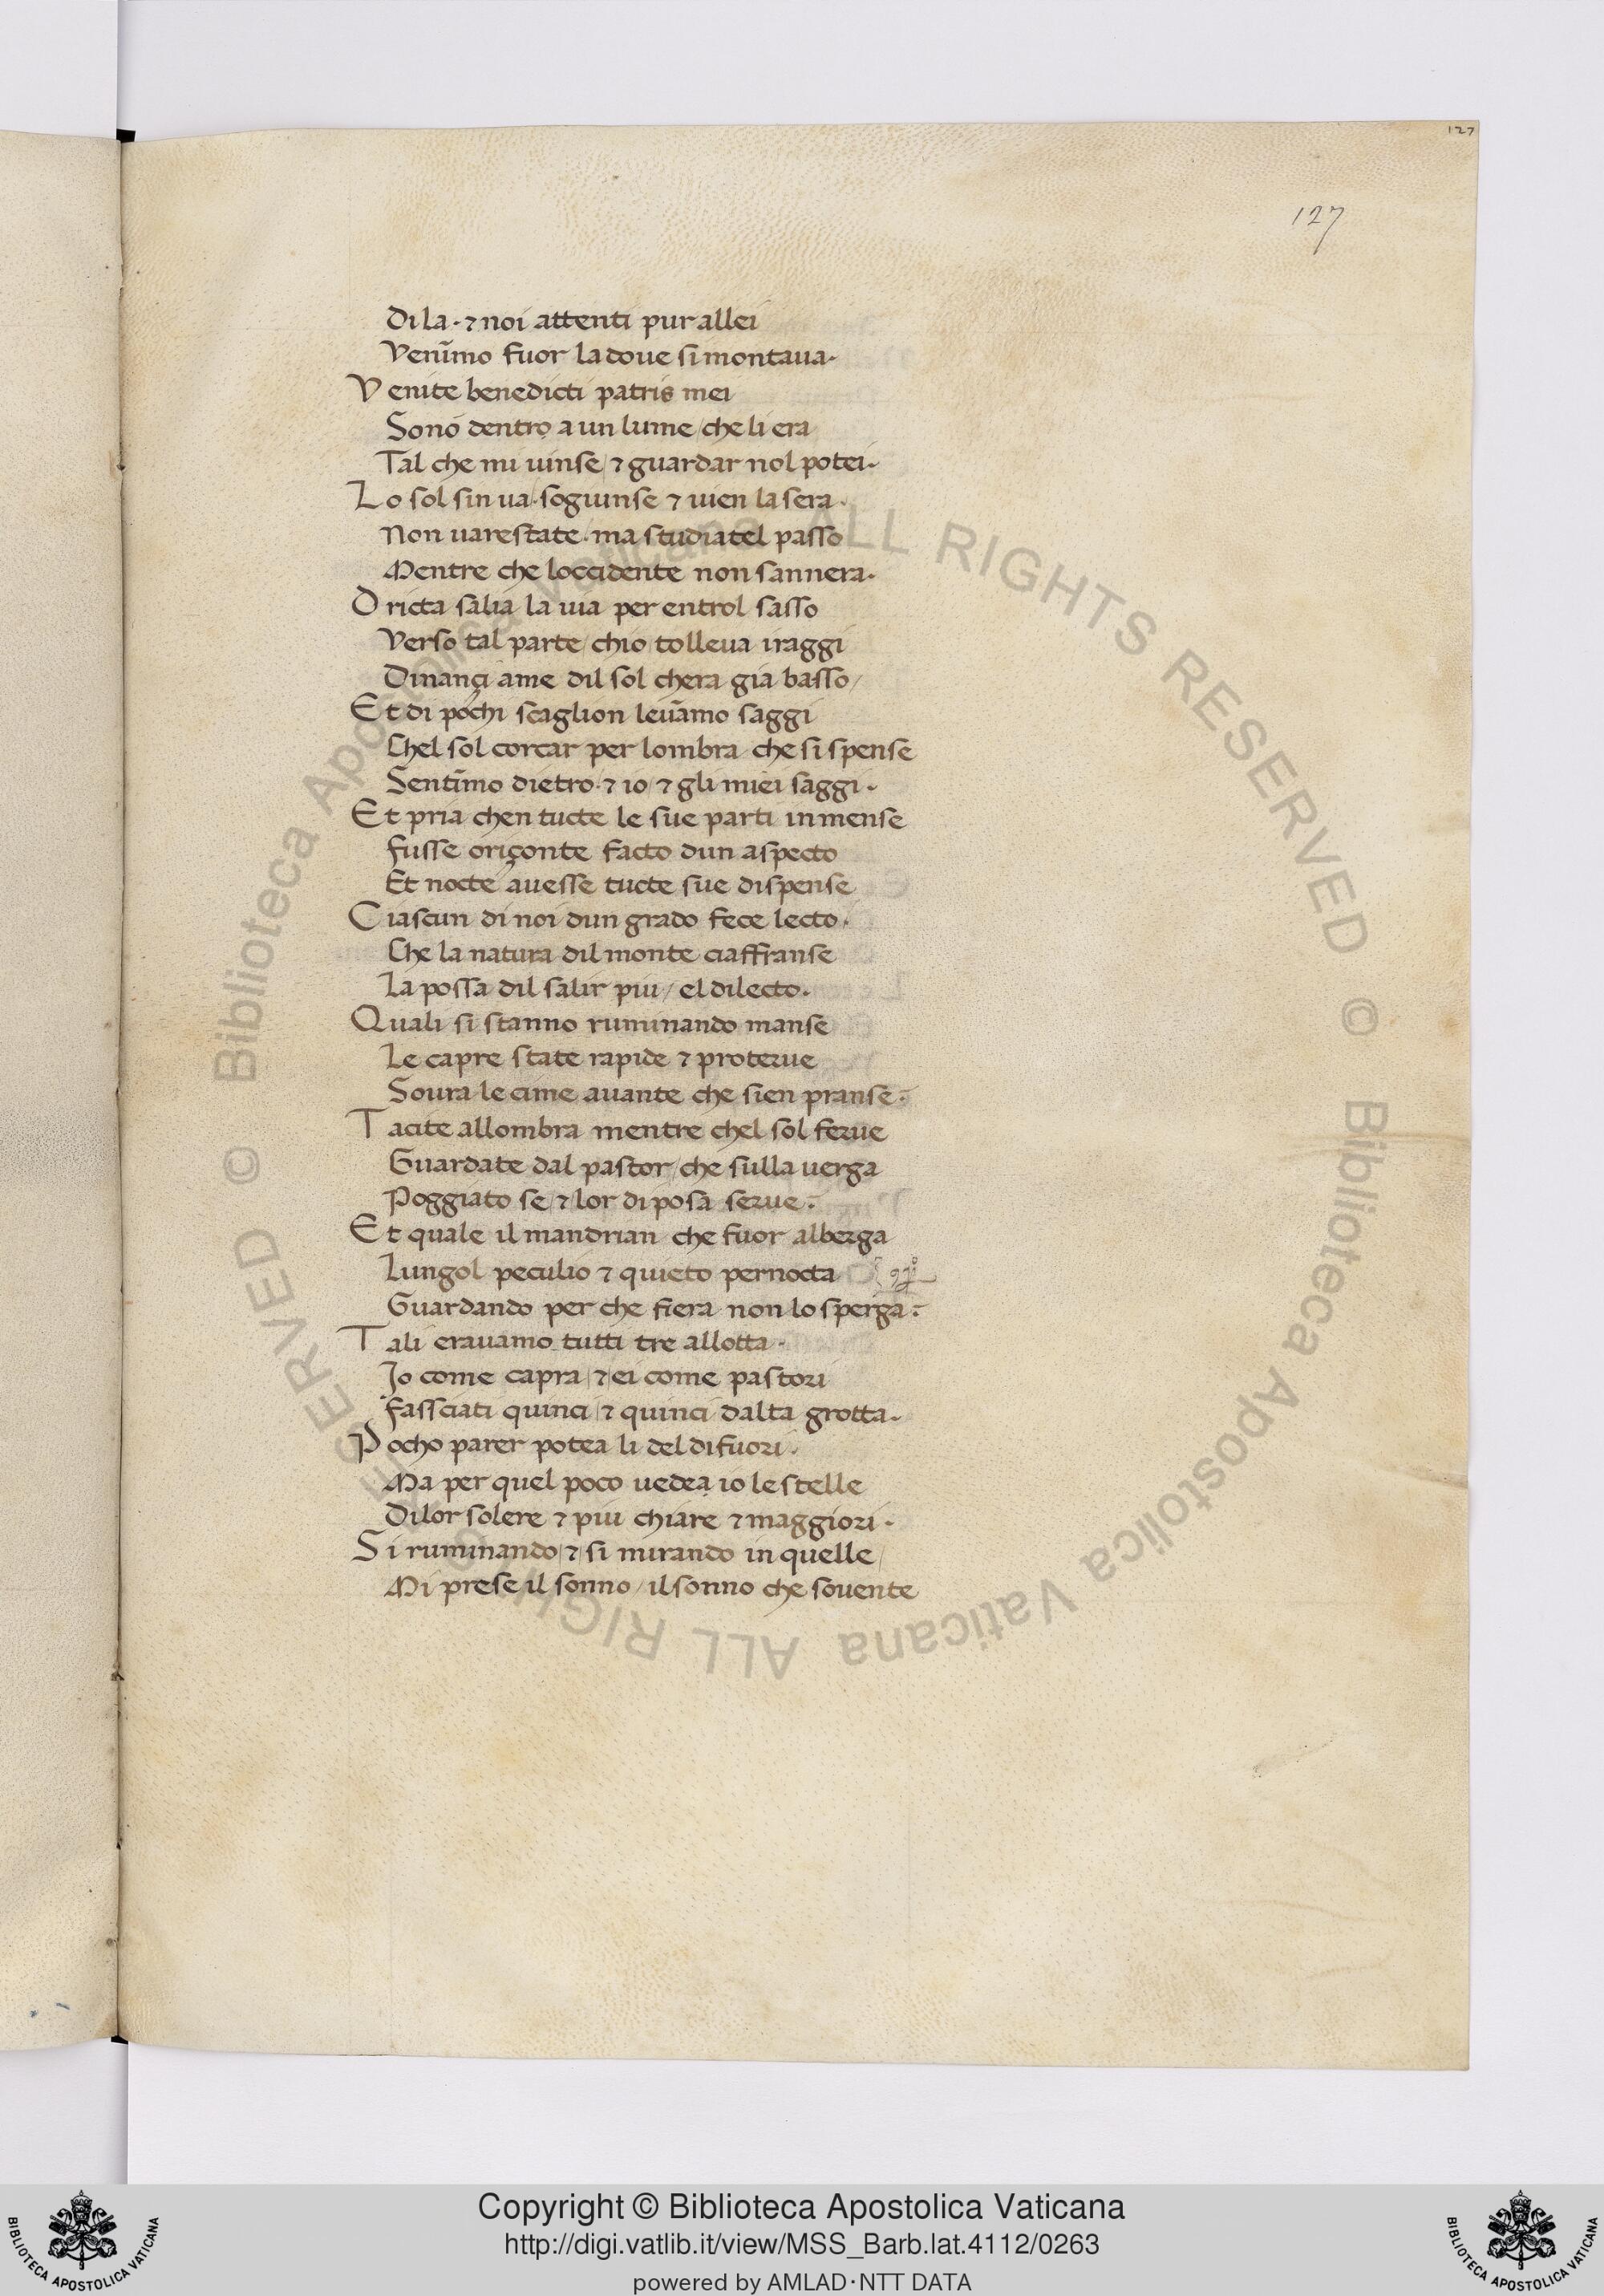 127
127
Di la · ⁊ noi attenti pur allei
Venīmo fuor la doue si montaua·
Venite benedicti patris mei
Sonò dentro a un lume / che li era
Tal che mi uinse / ⁊ guardar nol potei·
Lo sol sin ua · sogiunse ⁊ uien la sera·
Non uarestate · ma studiatel passo
Mentre che loccidente non sannera·
Dricta salia la uia per entrol sasso
Verso tal parte / chio tolleua i raggi
Dinançi a me dil sol chera già basso /
Et di pochi scaglion leuāmo saggi
Chel sol corcar per lombra che si spense
Sentīmo dietro · ⁊ io / ⁊ gli miei saggi·
Et pria chen tucte le sue parti inmense
fusse oriçonte facto dun aspecto
Et nocte auesse tucte sue dispense
Ciascun di noi dun grado fece lecto·
Che la natura dil monte ciaffranse
La possa dil salir più / el dilecto·
Quali si stanno ruminando manse
Le capre state rapide ⁊ proterue
Soura le cime auante che sien pranse :
Tacite allombra mentre chel sol ferue
Guardate dal pastor / che sulla uerga
Poggiato se / ⁊ lor di posa serue :
Et quale il mandrian che fuor alberga
Lungol peculio ⁊ quieto pernocta
Guardando per che fiera non lo sperga :
Tali erauamo tutti tre allotta·
Io come capra / ⁊ ei come pastori
fassciati quinci / ⁊ quinci dalta grotta·
Pocho parer potea li del di fuori·
Ma per quel poco uedea io le stelle
Di lor solere ⁊ più chiare ⁊ maggiori·
Si ruminando / ⁊ si mirando in quelle /
Mi prese il sonno / il sonno che souente
© Biblioteca Apostolica Vaticana ALL RIGHTS RESERVED © Biblioteca Apostolica Vaticana ALL RIGHTS RESERVED
Copyright © Biblioteca Apostolica Vaticana
http://digi.vatlib.it/view/MSS_Barb.lat.4112/0263
powered by AMLAD·NTT DATA
BIBLIOTECA APOSTOLICA VATICANA
BIBLIOTECA APOSTOLICA VATICANA